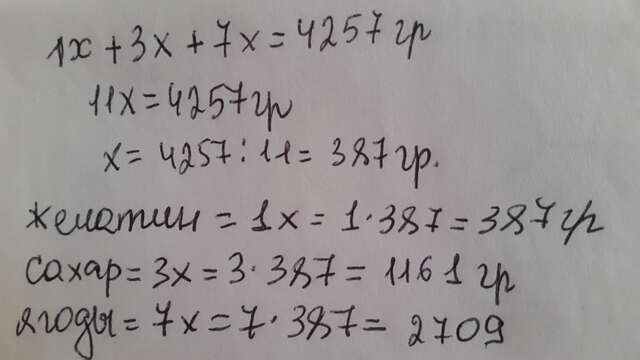 1x + 3x + 7x = 4257 гр
11x = 4257 гр
x = 4257 : 11 = 387 гр.
желатин = 1x = 1 · 387 = 387 гр
сахар = 3x = 3 · 387 = 1161 гр
ягоды = 7x = 7 · 387 = 2709